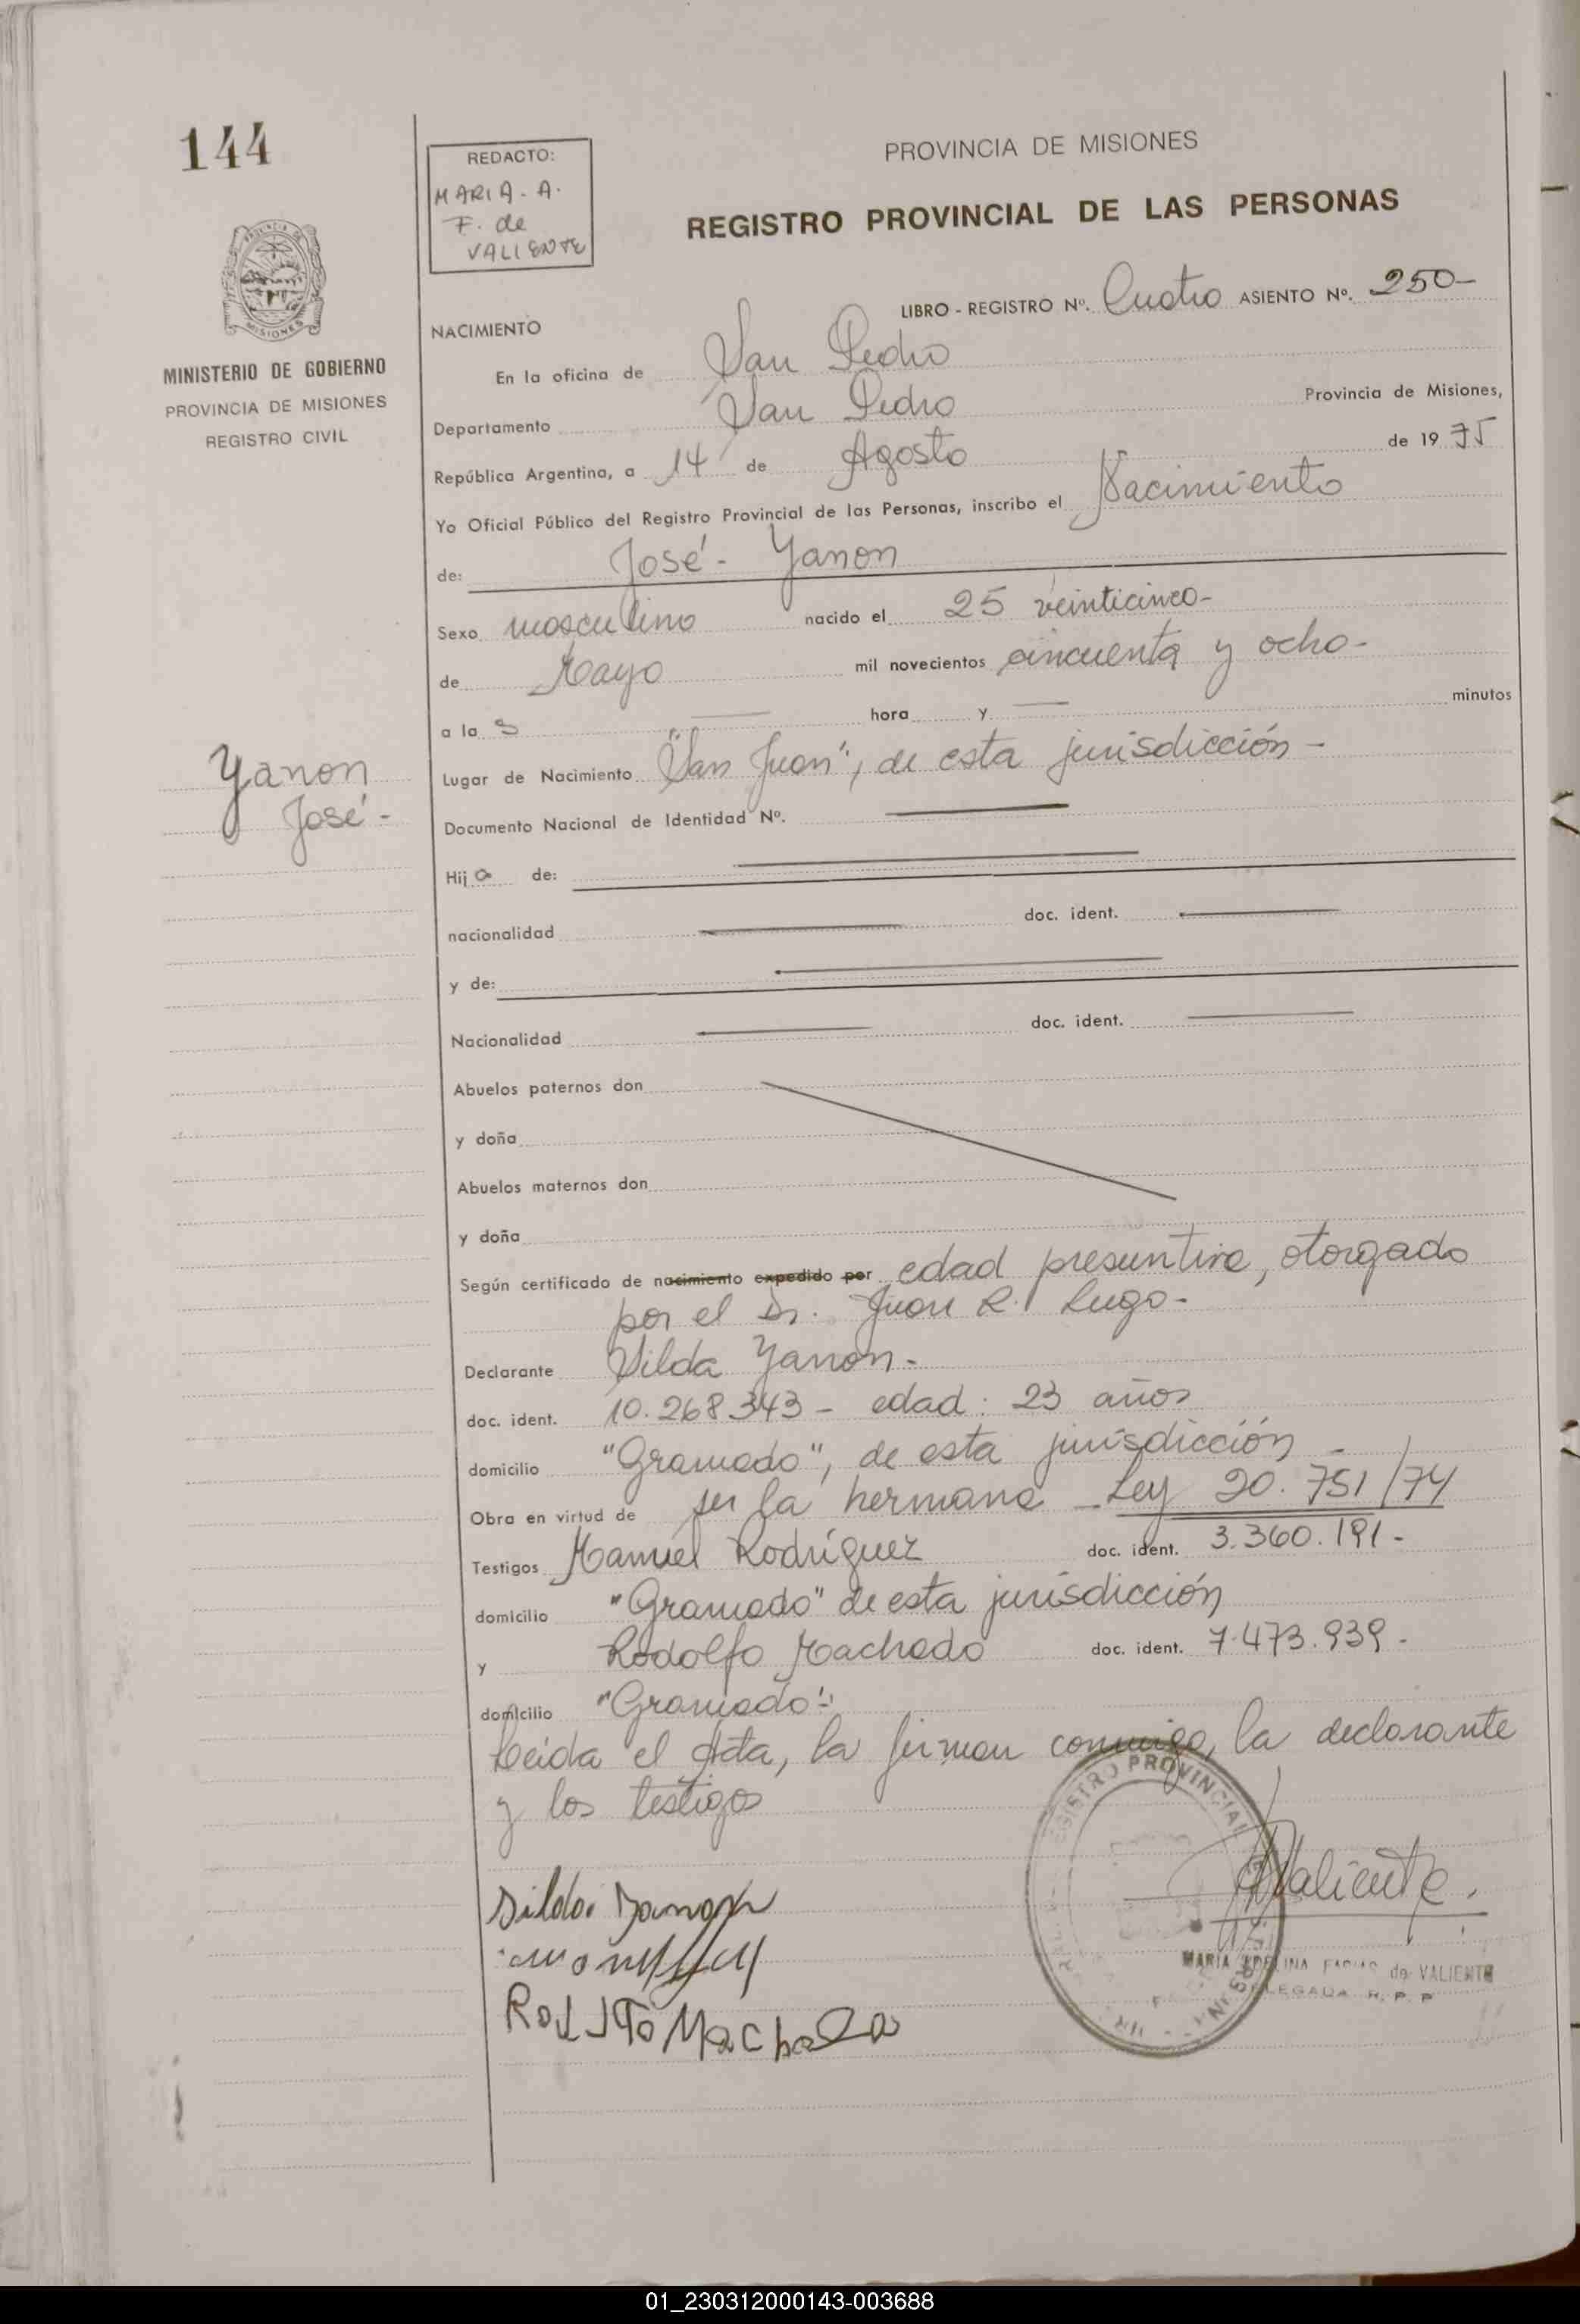 144
REDACTO:
MARIA - A.
F. de
VALIENTE
PROVINCIA DE MISIONES
REGISTRO PROVINCIAL DE LAS PERSONAS
LIBRO - REGISTRO Nº. Cuatro ASIENTO Nº. 250-
MINISTERIO DE GOBIERNO
PROVINCIA DE MISIONES
REGISTRO CIVIL
NACIMIENTO
En la oficina de San Pedro
Departamento San Pedro Provincia de Misiones,
República Argentina, a 14 de Agosto de 19 75
Yo Oficial Público del Registro Provincial de las Personas, inscribo el Nacimiento
de: José - Yanon
Sexo masculino nacido el 25 veinticinco-
de Mayo mil novecientos cincuenta y ocho-
a la s hora y minutos
Yanon
José -
Lugar de Nacimiento "San Juan", de esta jurisdicción -
Documento Nacional de Identidad Nº.
Hij o de:
nacionalidad doc. ident.
y de:
Nacionalidad doc. ident.
Abuelos paternos don
y doña
Abuelos maternos don
y doña
Según certificado de nacimiento expedido por edad presuntiva, otorgado
por el Dr. Juan R. Lugo-
Declarante Silda Yanon-
doc. ident. 10.268.343 - edad: 23 años
domicilio "Gramado", de esta jurisdicción -
Obra en virtud de ser la hermana - Ley 20.751/74
Testigos Manuel Rodríguez doc. ident. 3.360.191-
domicilio "Gramado" de esta jurisdicción
y Rodolfo Machado doc. ident. 7.473.939-
domicilio "Gramado"-
Leida el Acta, la firman conmigo, la declarante
y los testigos
Silda Yanon
Machado
REGISTRO PROVINCIAL
Valiente.
MARIA de VALIENTE
DELEGADA R. P. P
01_230312000143-003688